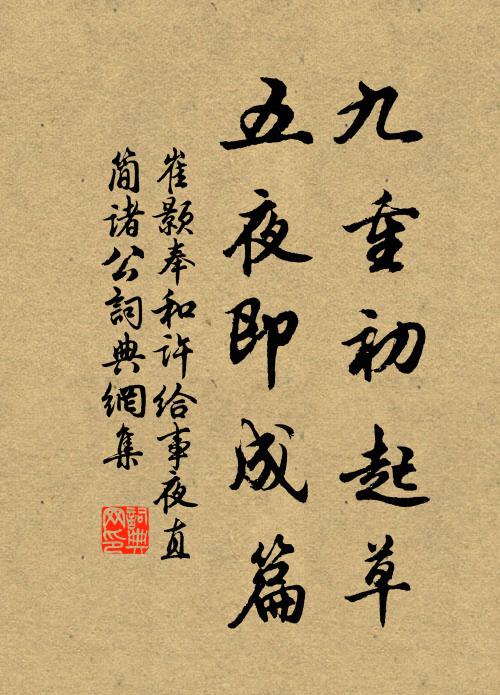 九重初起草
五夜即成篇
崔颢奉和许给事夜直
简诸公詞典網集
詞典
网印